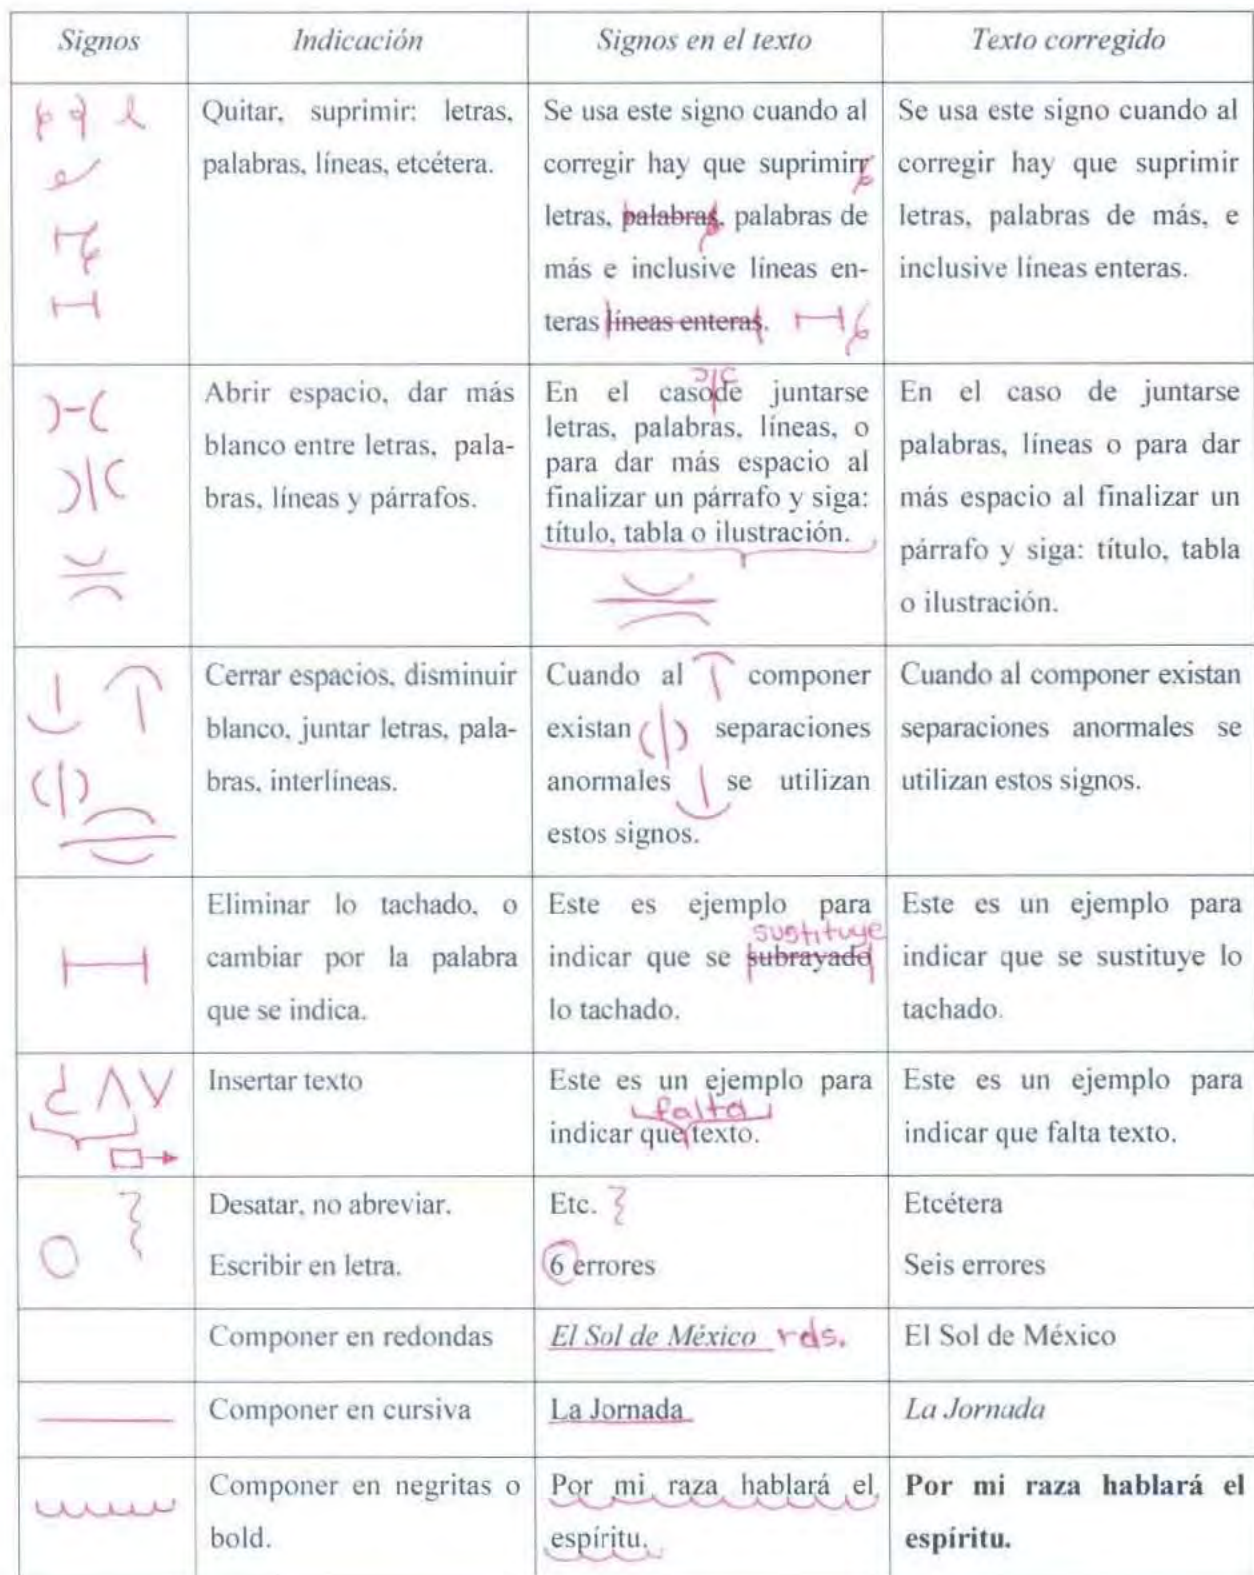 Signos Indicación Signos en el texto Texto corregido
Quitar, suprimir: letras,
palabras, líneas, etcétera.
Se usa este signo cuando al
corregir hay que suprimirr
letras, palabras, palabras de
más e inclusive líneas en-
teras líneas enteras.
Se usa este signo cuando al
corregir hay que suprimir
letras, palabras de más, e
inclusive líneas enteras.
Abrir espacio, dar más
blanco entre letras, pala-
bras, líneas y párrafos.
En el casode juntarse
letras, palabras, líneas, o
para dar más espacio al
finalizar un párrafo y siga:
título, tabla o ilustración.
En el caso de juntarse
palabras, líneas o para dar
más espacio al finalizar un
párrafo y siga: título, tabla
o ilustración.
Cerrar espacios, disminuir
blanco, juntar letras, pala-
bras, interlíneas.
Cuando al componer
existan separaciones
anormales se utilizan
estos signos.
Cuando al componer existan
separaciones anormales se
utilizan estos signos.
Eliminar lo tachado, o
cambiar por la palabra
que se indica.
Este es ejemplo para
sustituye
indicar que se subrayado
lo tachado.
Este es un ejemplo para
indicar que se sustituye lo
tachado.
Insertar texto
Este es un ejemplo para
falta
indicar que texto.
Este es un ejemplo para
indicar que falta texto.
Desatar, no abreviar.
Escribir en letra.
Etc.
6 errores
Etcétera
Seis errores
Componer en redondas
El Sol de México rds.
El Sol de México
Componer en cursiva
La Jornada
La Jornada
Componer en negritas o
bold.
Por mi raza hablará el
espíritu.
Por mi raza hablará el
espíritu.